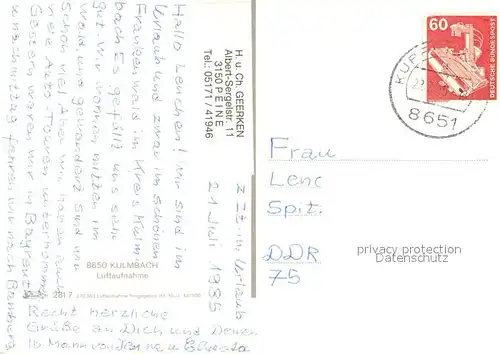 H. u. Ch. GEERKEN
Albert-Sergelstr. 11
3150 PEINE
Tel.: 05171/41946
z Zt. im Urlaub
21 Juli 1985
Hallo Lenchen! Wir sind im
Urlaub und zwar im schönen
Frankenwald im Kreis Kulm
bach Es gefällt uns sehr
gut wir wohnen mitten im
Wald und gewandert sind wir
schon viel Aber wir haben auch
viele Auto Touren unternommen
Gestern waren wir in Bayreuth
fahren wir nach Bamberg
Recht herzliche
Grüße an Dich und Deinen
Mann von
8650 KULMBACH
Luftaufnahme
2817
60
DEUTSCHE BUNDESPOST
8651
Frau
Lenc
Spit.
DDR
75
privacy protection
www.oldthing.de